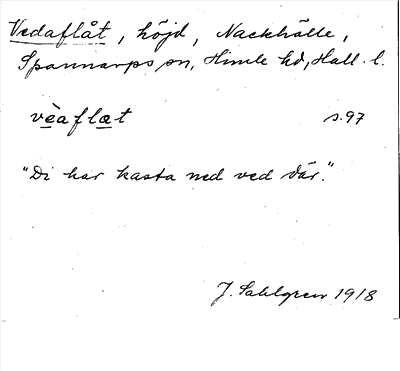 Vedaflåt, höjd, Nackhälle,
Spannarps sn, Himle hd, Hall. l.
vèaflæt s. 97.
"Di har kasta ned ved där."
J. Sahlgren 1918